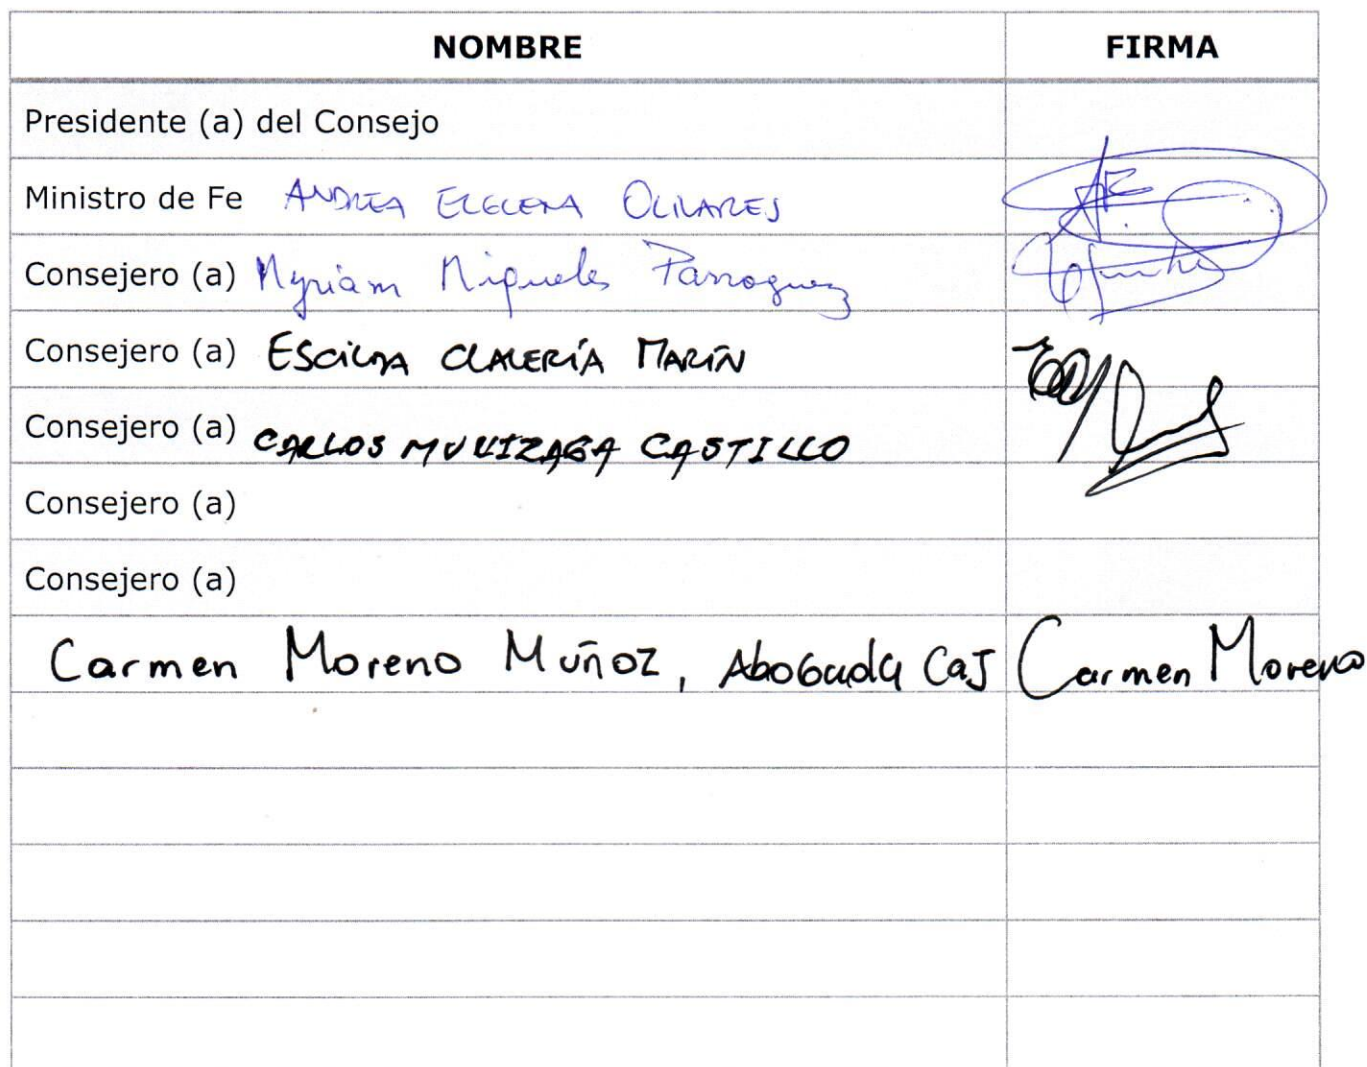 NOMBRE FIRMA
Presidente (a) del Consejo
Ministro de Fe ANDREA OLIVARES
Consejero (a) Myriam Migueles Parraguez
Consejero (a) ESCILDA CLAVERÍA MARÍN
Consejero (a) CARLOS MULIZAGA CASTILLO
Consejero (a)
Consejero (a)
Carmen Moreno Muñoz, Abogada CAJ Carmen Moreno